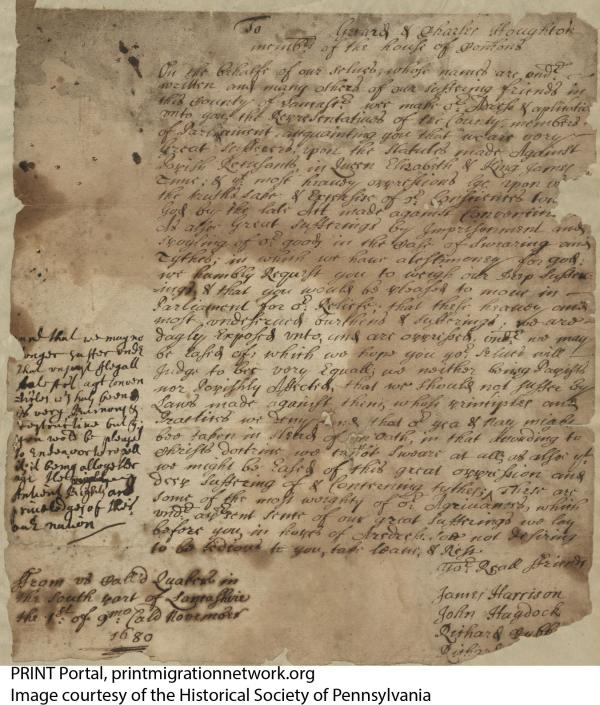 To Girard & Charles Houghton
membrs of the house of Comons
On the behalfe of our selves, whose names are
written and many others of our suffering friends in
this County of
onto you the Representatives of the County, members
of Parliament, acquainting you that we are very
Great Sufferers, upon the Statutes made Against
Popish Recusants, in Queen Elizabeth & King James
Time; & most heavy oppressions lye upon us
the truths sake & Exercise of or Consciences to
God by the late Act made against
As also Great Sufferings by Imprisonment and
Spoyling of or goods in the Case of Swearing and
Tythes; in which we have a testimony for god:
we humbly Request you to weigh our deep Suffer
ings, & that you would be pleased to move in
Parliament for or Reliefe; that these heavy and
most undeserved burthens & sufferings; we are
dayly Exposed unto, and are oppressed, we may
be Eased of; which we hope you will
Judge to bee very Equall; we neither being Popish
nor Popishly Affected, that we should not suffer by
Laws made against them, whose Principles and
Practices we deny, and that or yea & Nay might
bee taken in stead of oath, in that according to
Christs doctrine, we cannot sweare at all; as also yt
we might be Eased of this great oppression and
deep suffering of tythes; These are
some of the most weighty of or Agrivances, which
under sent sense of our great Sufferings we lay
before you, in hopes of Redress, not desiring
to be tedious to you, take leave, & Rest
Yor Reall friends
James Harrison
John Haydock
Richard
Richard
and that we may no
longer suffer
that unjust illegall
is very
but
you would be pleased
to Endeavor
it being altogether
Rights and
priviledges of this
our nation
From us Calld Quakers in
the South part of Lancashire
the 1st of 9mo Calld November
1680
PRINT Portal, printmigrationnetwork.org
Image courtesy of the Historical Society of Pennsylvania